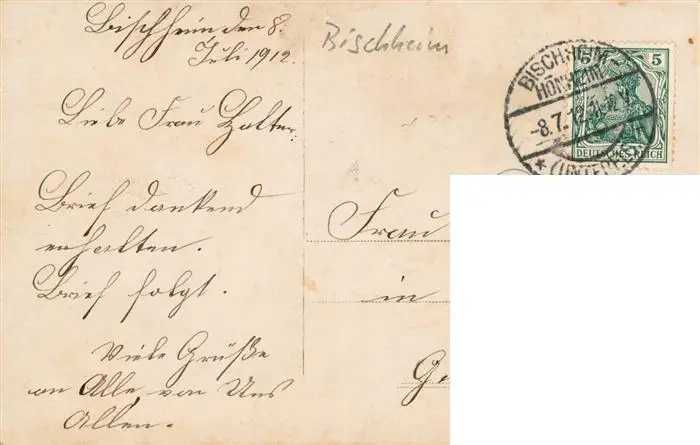 Bischheim den 8.
Juli 1912.
Liebe Frau Halter.
Brief dankend
erhalten.
Brief folgt.
Viele Grüße
an Alle von Uns
Allen.
Bischheim
BISCHHEIM-
HÖNHEIM
-8.7.12.
* (UNTERELS
5 5
DEUTSCHES REICH
Frau
in